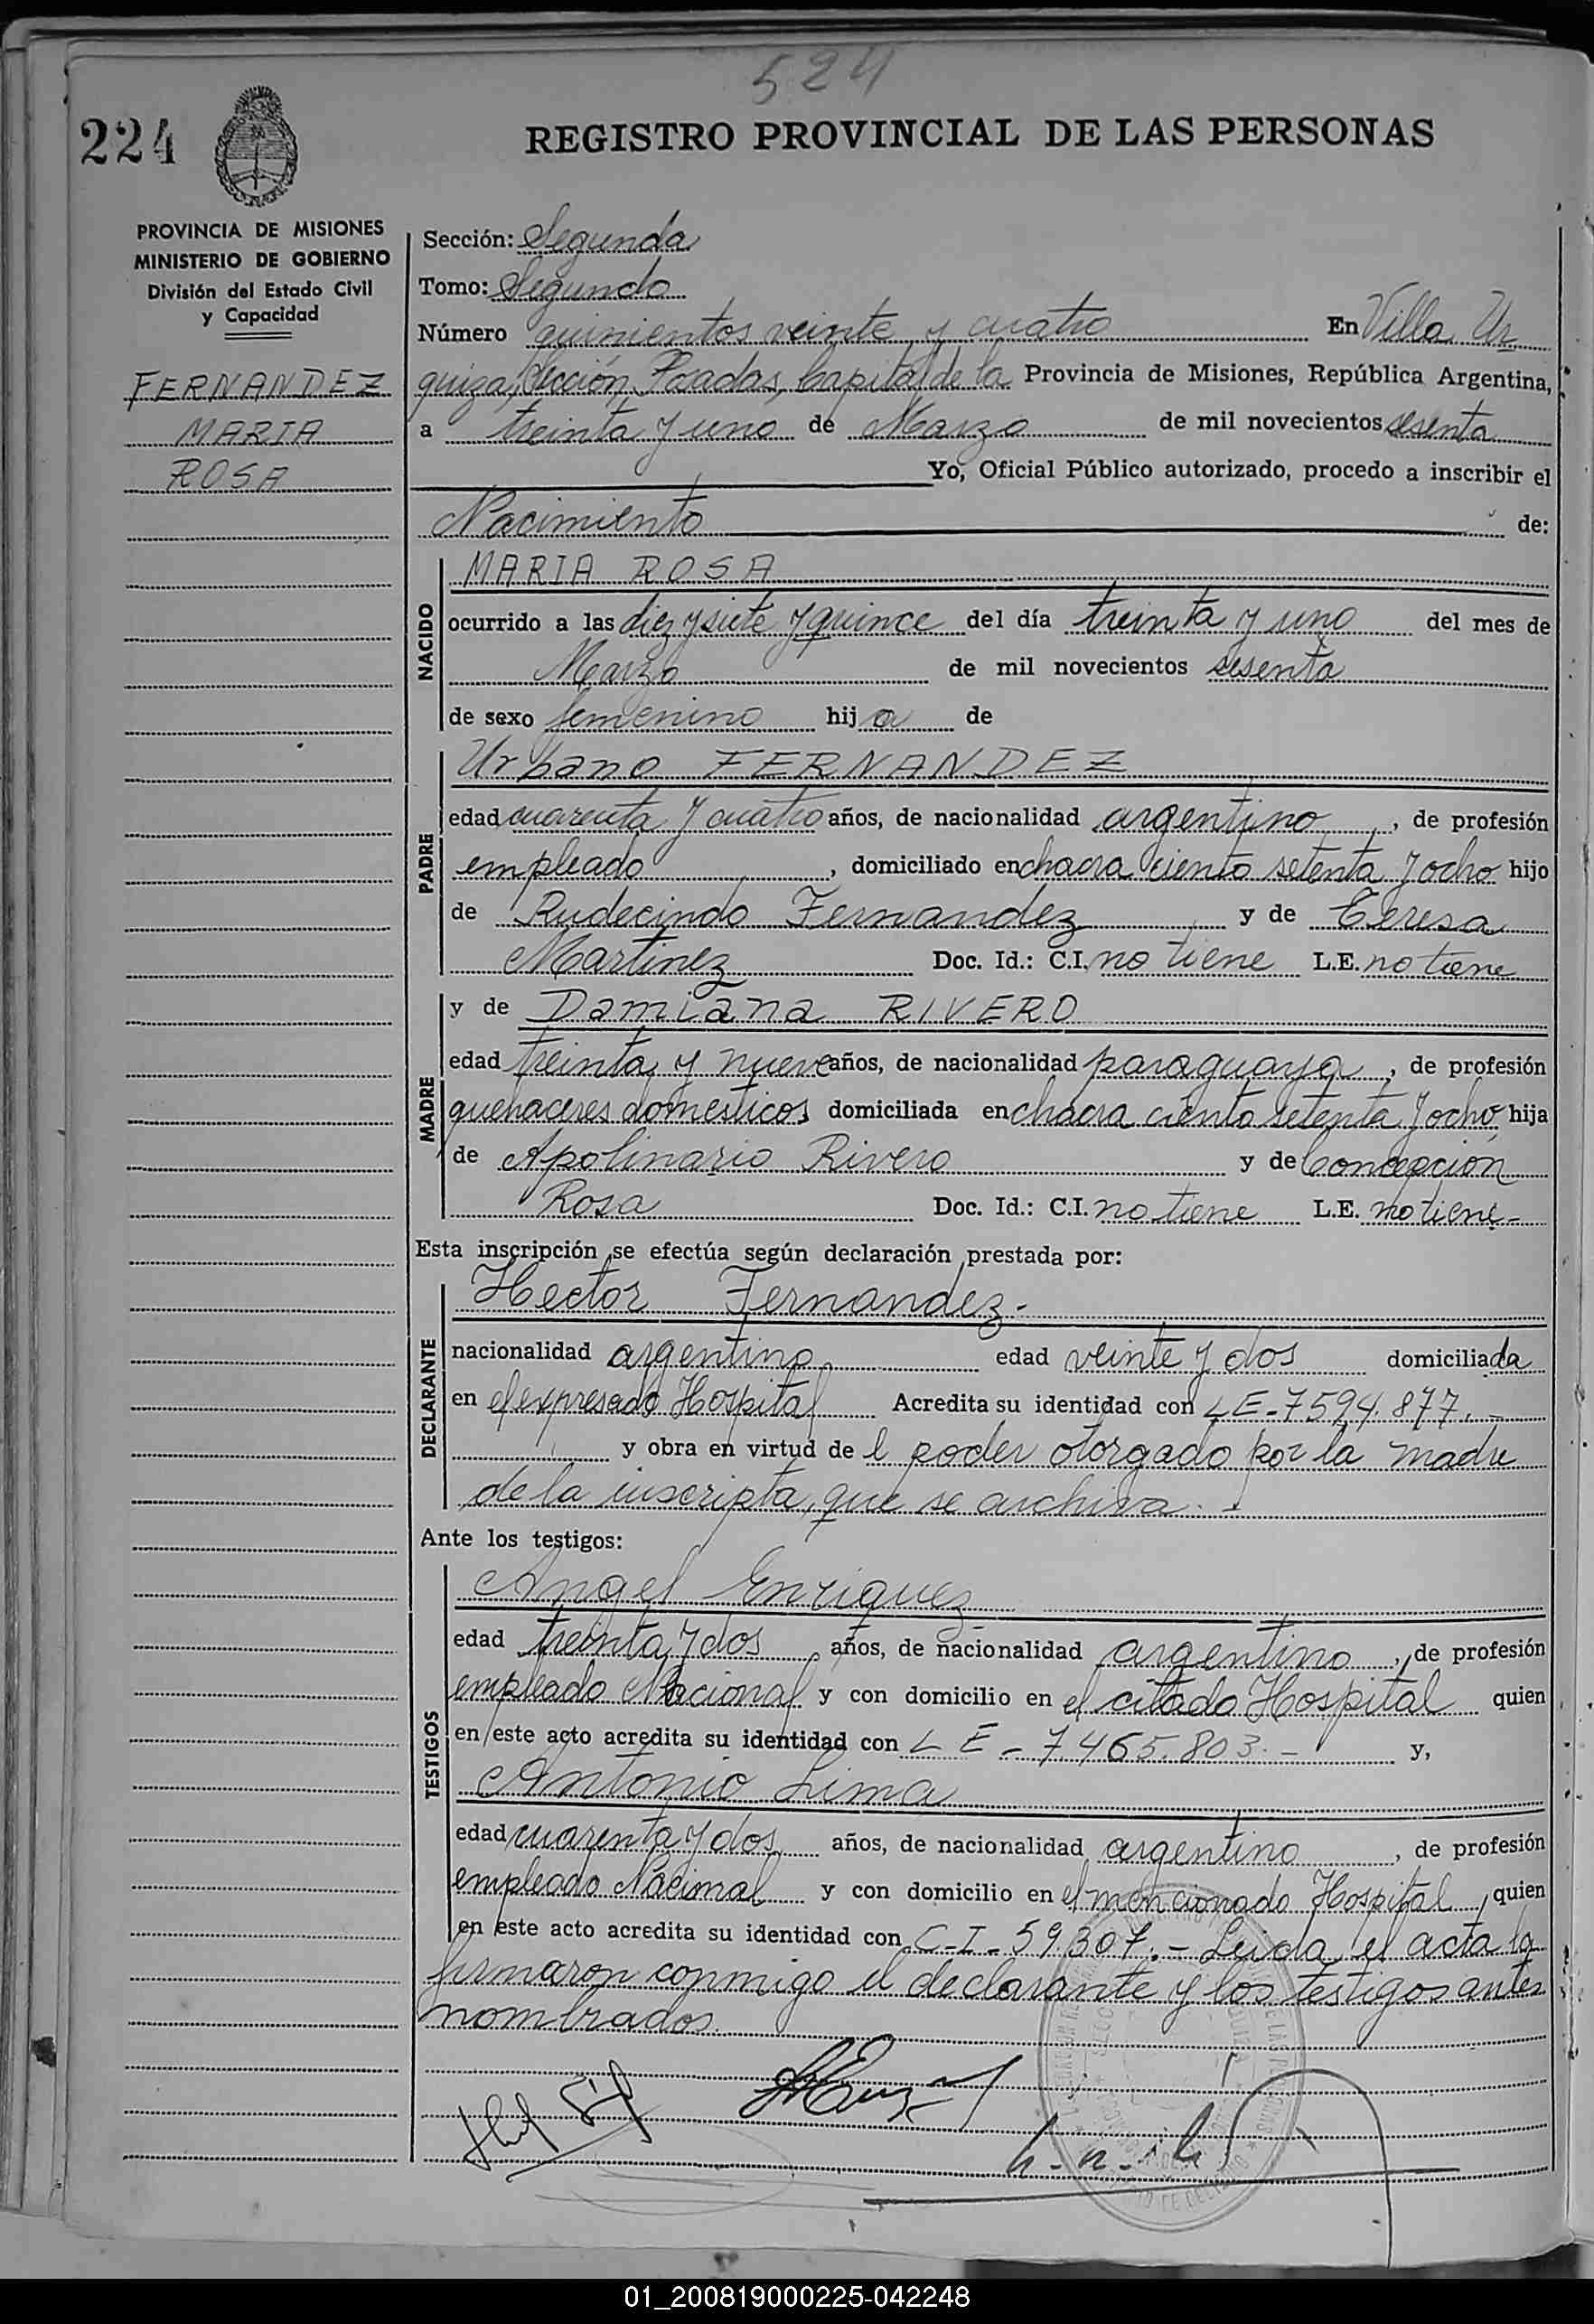 524
224
REGISTRO PROVINCIAL DE LAS PERSONAS
PROVINCIA DE MISIONES
MINISTERIO DE GOBIERNO
División del Estado Civil
y Capacidad
FERNANDEZ
MARIA
ROSA
Sección: Segunda
Tomo: Segundo
Número quinientos veinte y cuatro En Villa Ur
quiza, Sección, Posadas, Capital de la Provincia de Misiones, República Argentina,
a treinta y uno de Marzo de mil novecientos sesenta
Yo, Oficial Público autorizado, procedo a inscribir el
Nacimiento de:
NACIDO
MARIA ROSA
ocurrido a las diez y siete y quince del día treinta y uno del mes de
Marzo de mil novecientos sesenta
de sexo femenino hija de
PADRE
Urbano FERNANDEZ
edad cuarenta y cuatro años, de nacionalidad argentino, de profesión
empleado, domiciliado en chacra ciento setenta y ocho hijo
de Rudecindo Fernandez y de Teresa
Martinez Doc. Id.: C.I. no tiene L.E. no tiene
MADRE
y de Damiana RIVERO
edad treinta y nueve años, de nacionalidad paraguaya, de profesión
quehaceres domesticos domiciliada en chacra ciento setenta y ocho, hija
de Apolinario Rivero y de Concepcion
Rosa Doc. Id.: C.I. no tiene L.E. no tiene-
Esta inscripción se efectúa según declaración prestada por:
DECLARANTE
Hector Fernandez.-
nacionalidad argentino edad veinte y dos domiciliada
en el expresado Hospital Acredita su identidad con LE-7594.877.-
y obra en virtud de l poder otorgado por la madre
de la inscripta, que se archiva.-
Ante los testigos:
TESTIGOS
Angel Enriquez
edad treinta y dos años, de nacionalidad argentino, de profesión
empleado Nacional y con domicilio en el citado Hospital quien
en este acto acredita su identidad con L E - 7.465.803.- y,
Antonio Lima
edad cuarenta y dos años, de nacionalidad argentino, de profesión
empleado Nacional y con domicilio en el mencionado Hospital, quien
en este acto acredita su identidad con C-I-59.307.- Leida el acta la
firmaron conmigo el declarante y los testigos antes
nombrados
01_200819000225-042248